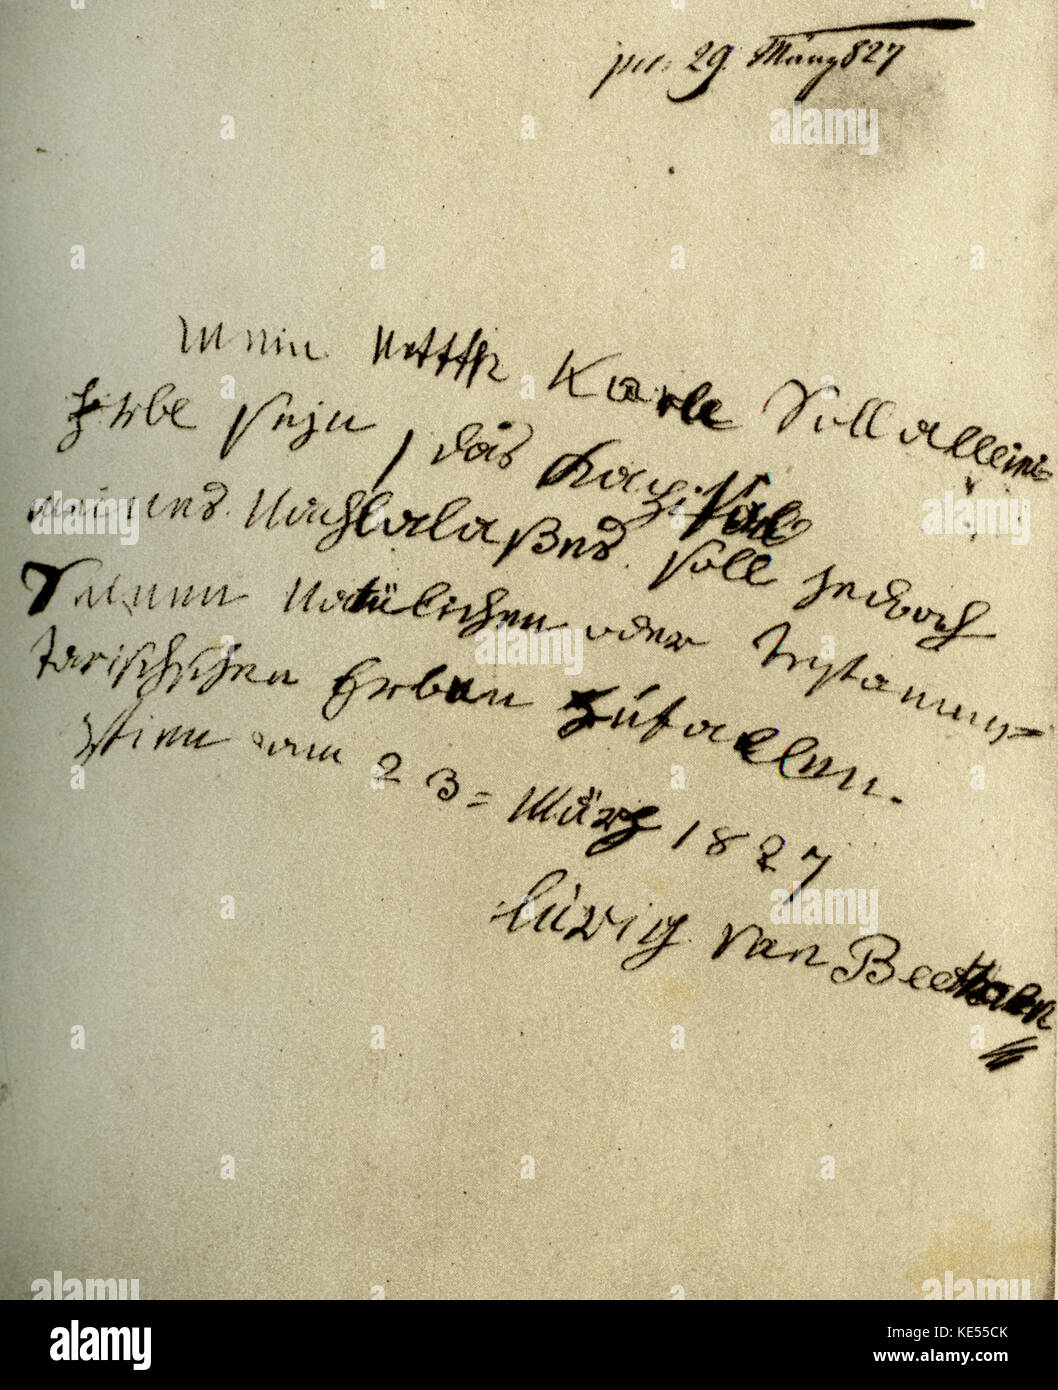 pres. 29 März 827
Mein Nefffe Karle Soll allein
Erbe sejn, das Kapital
meines Nachlalaßes soll jedoch
Seinen Natülichen oder Testamen=
tarischschen Erben zufallen.
Wien am 23= März 1827
luwig van Beethoven
alamy
Image ID: KE55CK
www.alamy.com